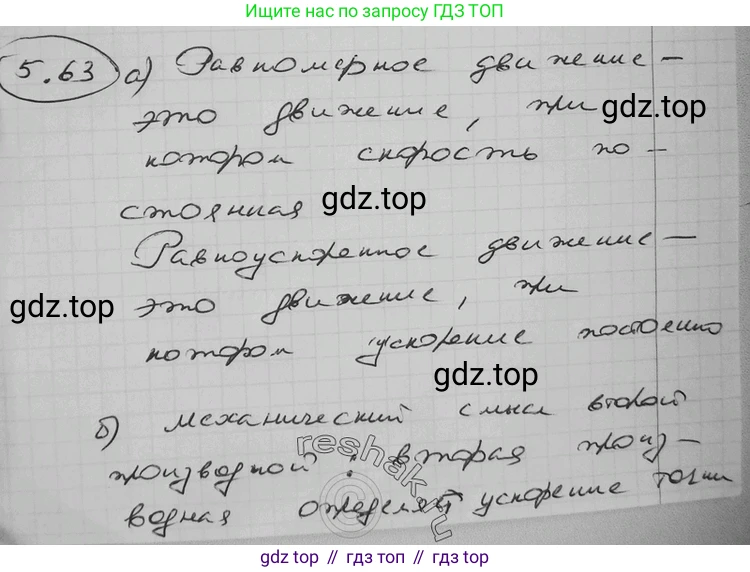 Ищите нас по запросу ГДЗ ТОП
5.63 а) Равномерное движение –
это движение, при
gdz.top
котором скорость по -
стоянная
gdz.top
Равноускоренное движение –
gdz.top
это движение, при
котором ускорение постоянно
gdz.top
б) механический смысл второй
производной : вторая произ –
reshak.ru
водная определяет ускорение точки
gdz top // гдз топ // gdz.top